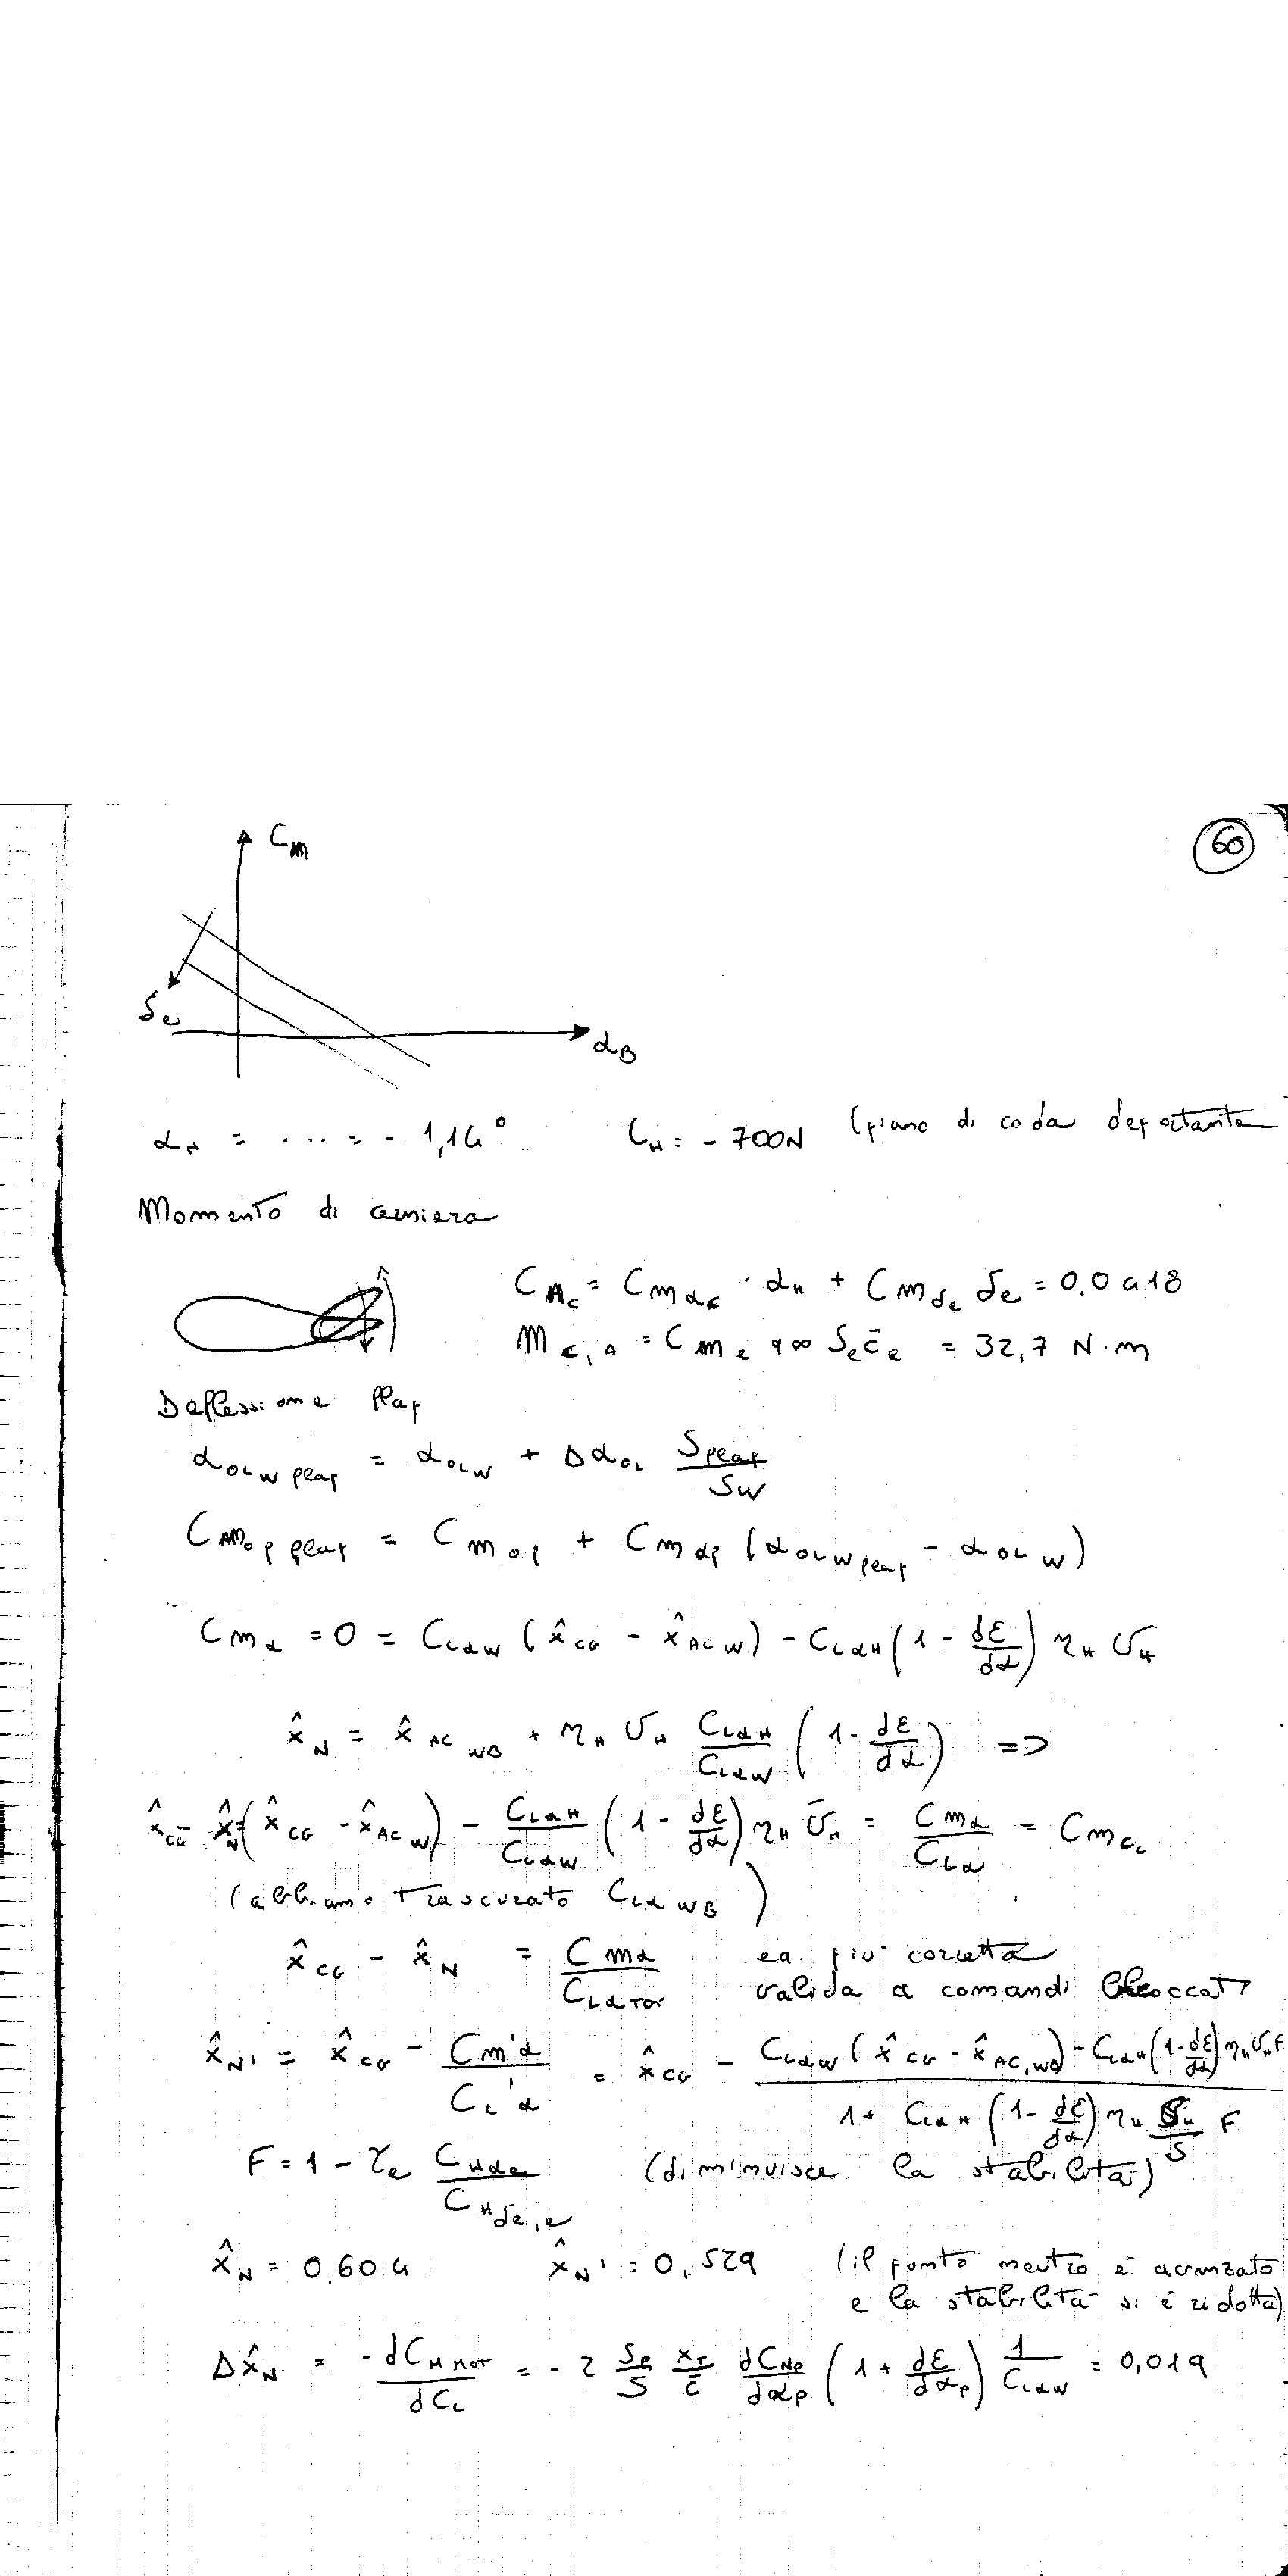 60
C_M
δ_e
α_B
α_H = .... = - 1,14° L_H = - 700N (piano di coda deportante
Momento di cerniera
C_{M_c} = C_{m_{α_c}} · α_H + C_{m_{δ_e}} δ_e = 0.0418
M_{c,A} = C_{m_e} q_∞ S_e c̄_e = 32,7 N·m
Deflessione flap
α_{OLW flap} = α_{OLW} + Δα_{OL} S_{flap}/S_W
C_{M_{OP} flap} = C_{m_{OP}} + C_{m_{αP}} (α_{OLW flap} - α_{OLW})
C_{mα} = 0 = C_{LαW} (x̂_{CG} - x̂_{ACW}) - C_{LαH} (1 - dε/dα) η_H V_H
x̂_N = x̂_{AC WB} + η_H V_H C_{LαH}/C_{LαW} (1 - dε/dα) =>
x̂_{CG} - x̂_N = (x̂_{CG} - x̂_{ACW}) - C_{LαH}/C_{LαW} (1 - dε/dα) η_H V̄_H = C_{mα}/C_{Lα} = C_{mCL}
(abbiamo trascurato C_{LαWB})
x̂_{CG} - x̂_N = C_{mα}/C_{LαTOT} eq. più corretta
valida a comandi bloccati
x̂_{N'} = x̂_{CG} - C_{m'α}/C_{L'α} = x̂_{CG} - [C_{LαW} (x̂_{CG} - x̂_{AC,WB}) - C_{LαH} (1 - dε/dα) η_H V_H F] / [1 + C_{LαH} (1 - dε/dα) η_H S_H/S F]
F = 1 - τ_e C_{Hαe}/C_{Hδe,e} (diminuisce la stabilità)
x̂_N = 0.604 x̂_{N'} = 0,529 (il punto neutro è avanzato
e la stabilità si è ridotta)
Δx̂_N = -dC_{M Mot}/dC_L = - 2 S_P/S x_T/c̄ dC_{NP}/dα_P (1 + dε/dα_P) 1/C_{LαW} = 0,019